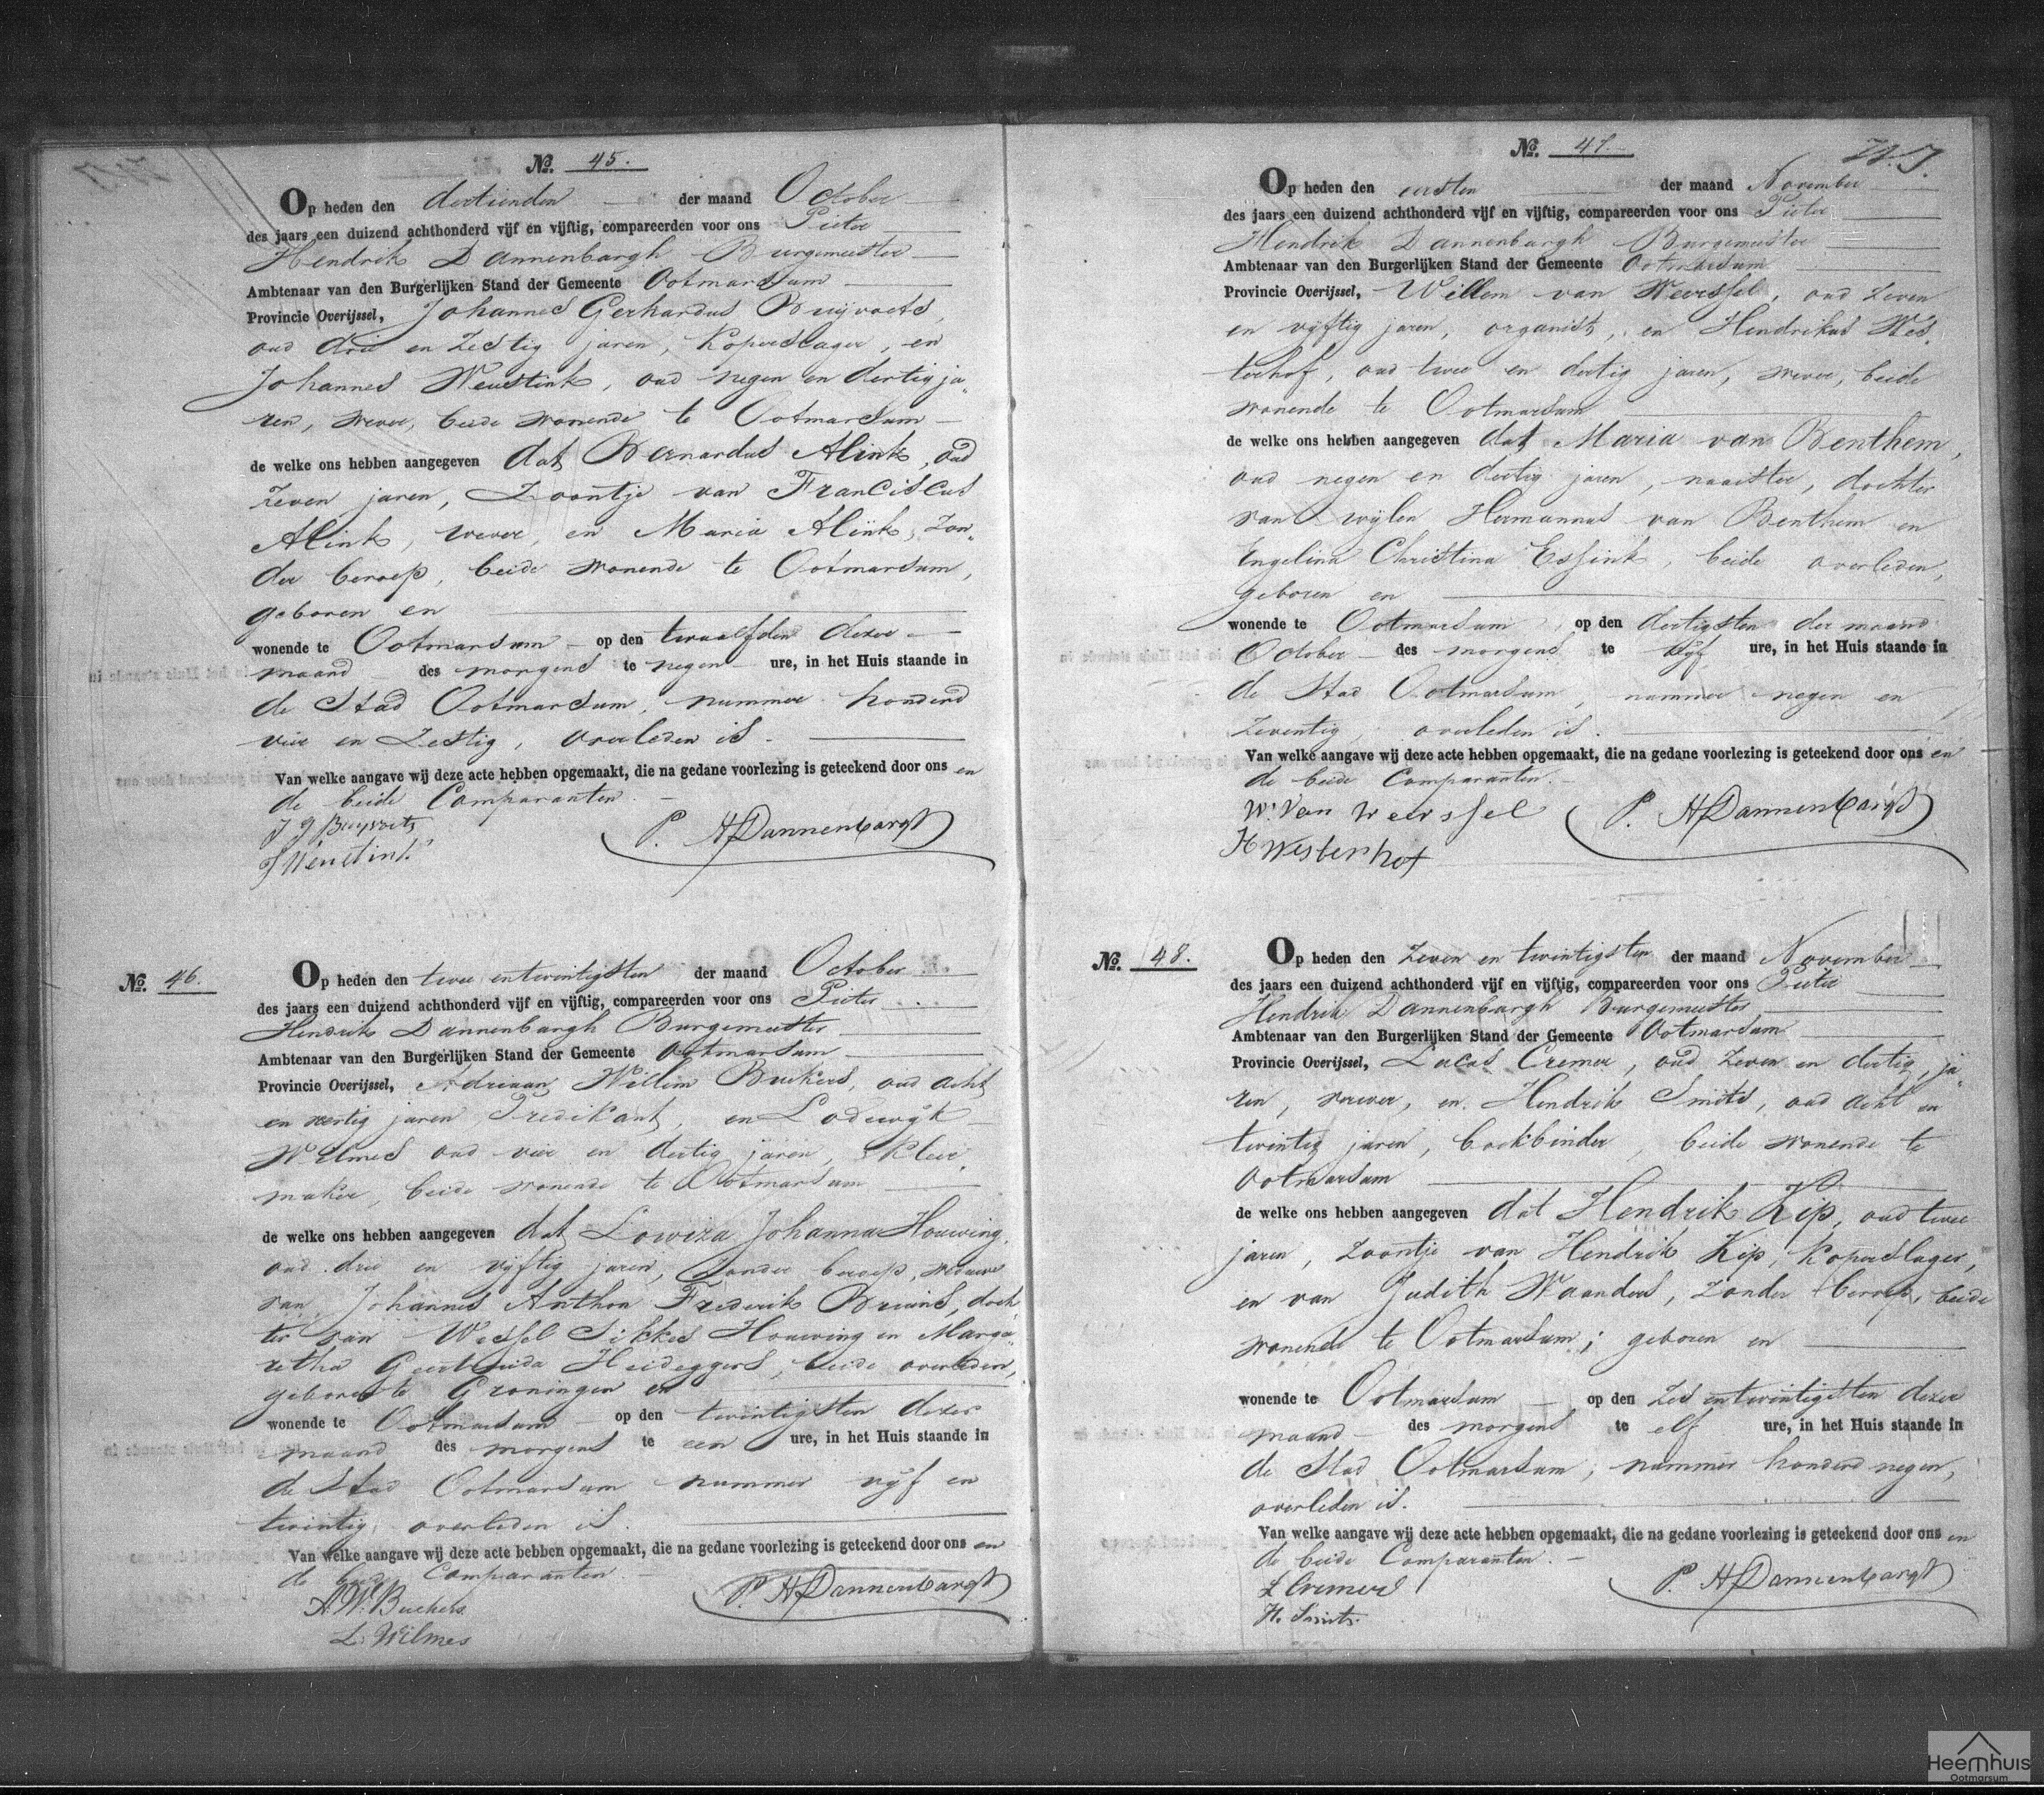 No. 45.
Op heden den dertienden der maand October
des jaars een duizend achthonderd vijf en vijftig, compareerden voor ons Pieter
Hendrik Dannenbargh Burgemeester
Ambtenaar van den Burgerlijken Stand der Gemeente Ootmarsum
Provincie Overijssel, Johannes Gerhardus Buijvoets,
oud drie en zestig jaren, koperslager, en
Johannes Weustink, oud negen en dertig ja-
ren, wever, beide wonende te Ootmarsum
de welke ons hebben aangegeven dat Bernardus Alink, oud
zeven jaren, zoontje van Franciscus
Alink, wever, en Maria Alink, zon-
der beroep, beide wonende te Ootmarsum,
geboren en
wonende te Ootmarsum op den twaalfden dezer
maand des morgens te negen ure, in het Huis staande in
de Stad Ootmarsum, nummer honderd
vier en zestig, overleden is.
Van welke aangave wij deze acte hebben opgemaakt, die na gedane voorlezing is geteekend door ons en
de beide Comparanten.
J G Buyvoets P. H Dannenbargh
J Weustink
No. 46.
Op heden den twee en twintigsten der maand October
des jaars een duizend achthonderd vijf en vijftig, compareerden voor ons Pieter
Hendrik Dannenbargh Burgemeester
Ambtenaar van den Burgerlijken Stand der Gemeente Ootmarsum
Provincie Overijssel, Adriaan Willem Buckers, oud acht
en veertig jaren Predikant, en Lodewyk
Wilmes oud vier en dertig jaren, kleer-
maker, beide wonende te Ootmarsum
de welke ons hebben aangegeven dat Lowiza Johanna Houwing,
oud drie en vyftig jaren, zonder beroep, weduwe
van Johannes Anthon Frederik Bruins, doch
ter van Wessel Sikkes Houwing en Marga-
retha Geertruida Heideggers, beide overleden,
geboren te Groningen en
wonende te Ootmarsum op den twintigsten dezer
maand des morgens te een ure, in het Huis staande in
de Stad Ootmarsum nummer vyf en
twintig overleden is.
Van welke aangave wij deze acte hebben opgemaakt, die na gedane voorlezing is geteekend door ons en
de beide Comparanten.
A. W. Buckers P. H Dannenbargh
L. Wilmes
No. 47.
Op heden den eersten der maand November
des jaars een duizend achthonderd vijf en vijftig, compareerden voor ons Pieter
Hendrik Dannenbargh Burgemeester
Ambtenaar van den Burgerlijken Stand der Gemeente Ootmarsum
Provincie Overijssel, Willem van Weerssel, oud zeven
en vyftig jaren, organist, en Hendrikus Wes-
terhof, oud twee en dertig jaren, wever, beide
wonende te Ootmarsum
de welke ons hebben aangegeven dat Maria van Benthem,
oud negen en dertig jaren, naaister, dochter
van wylen Hermannus van Benthem en
Engelina Christina Essink, beide overleden,
geboren en
wonende te Ootmarsum op den dertigsten der maand
October des morgens te vyf ure, in het Huis staande in
de Stad Ootmarsum, nummer negen en
zeventig, overleden is.
Van welke aangave wij deze acte hebben opgemaakt, die na gedane voorlezing is geteekend door ons en
de beide Comparanten.
W. Van Weerssel P. H Dannenbargh
H Westerhof
No. 48.
Op heden den zeven en twintigsten der maand November
des jaars een duizend achthonderd vijf en vijftig, compareerden voor ons Pieter
Hendrik Dannenbargh Burgemeester
Ambtenaar van den Burgerlijken Stand der Gemeente Ootmarsum
Provincie Overijssel, Lucas Cremer, oud zeven en dertig ja-
ren, wever, en Hendrik Smits, oud acht en
twintig jaren, boekbinder, beide wonende te
Ootmarsum
de welke ons hebben aangegeven dat Hendrik Kip, oud twee
jaren, zoontje van Hendrik Kip, Koperslager,
en van Judith Waanders, zonder beroep, beide
wonende te Ootmarsum; geboren en
wonende te Ootmarsum op den zes en twintigsten dezer
maand des morgens te elf ure, in het Huis staande in
de Stad Ootmarsum, nummer honderd negen,
overleden is.
Van welke aangave wij deze acte hebben opgemaakt, die na gedane voorlezing is geteekend door ons en
de beide Comparanten.
L Cremers P. H Dannenbargh
H. Smits
Heemhuis
Ootmarsum